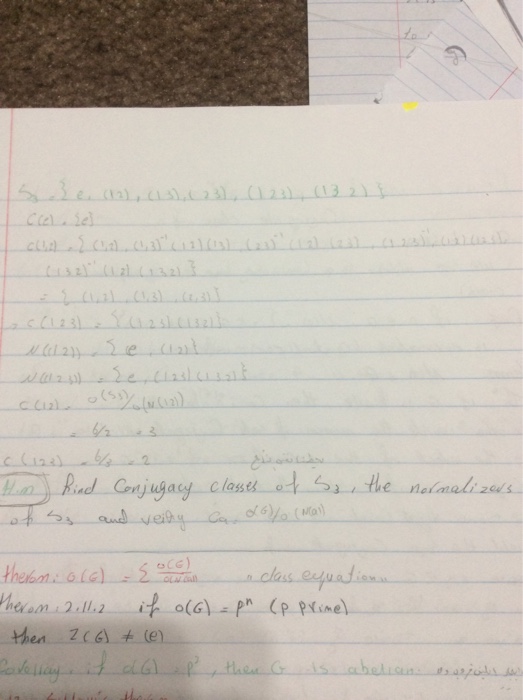 S3 = { e, (12), (13), (23), (123), (132) }
C(e) = {e}
C(1,2) = { (1,2), (1,3)⁻¹(12)(13), (23)⁻¹(12)(23), (123)⁻¹(12)(123)
(132)⁻¹(12)(132) }
= { (1,2), (1,3), (2,3) }
C(123) = { (123)(132) }
N((12)) = { e, (12) }
N((123)) = { e, (123)(132) }
C(12) = o(S3)/o(N(12))
= 6/2 = 3
C(123) = 6/3 = 2
Find Conjugacy classes of S3, the normalizers
of S3 and verify Ca = o(G)/o(N(a))
therom: o(G) = Σ o(G)/o(N(a)) class equation
therom: 2.11.2 if o(G) = pⁿ (p prime)
then Z(G) ≠ (e)
Corollary: if o(G) = p², then G is abelian